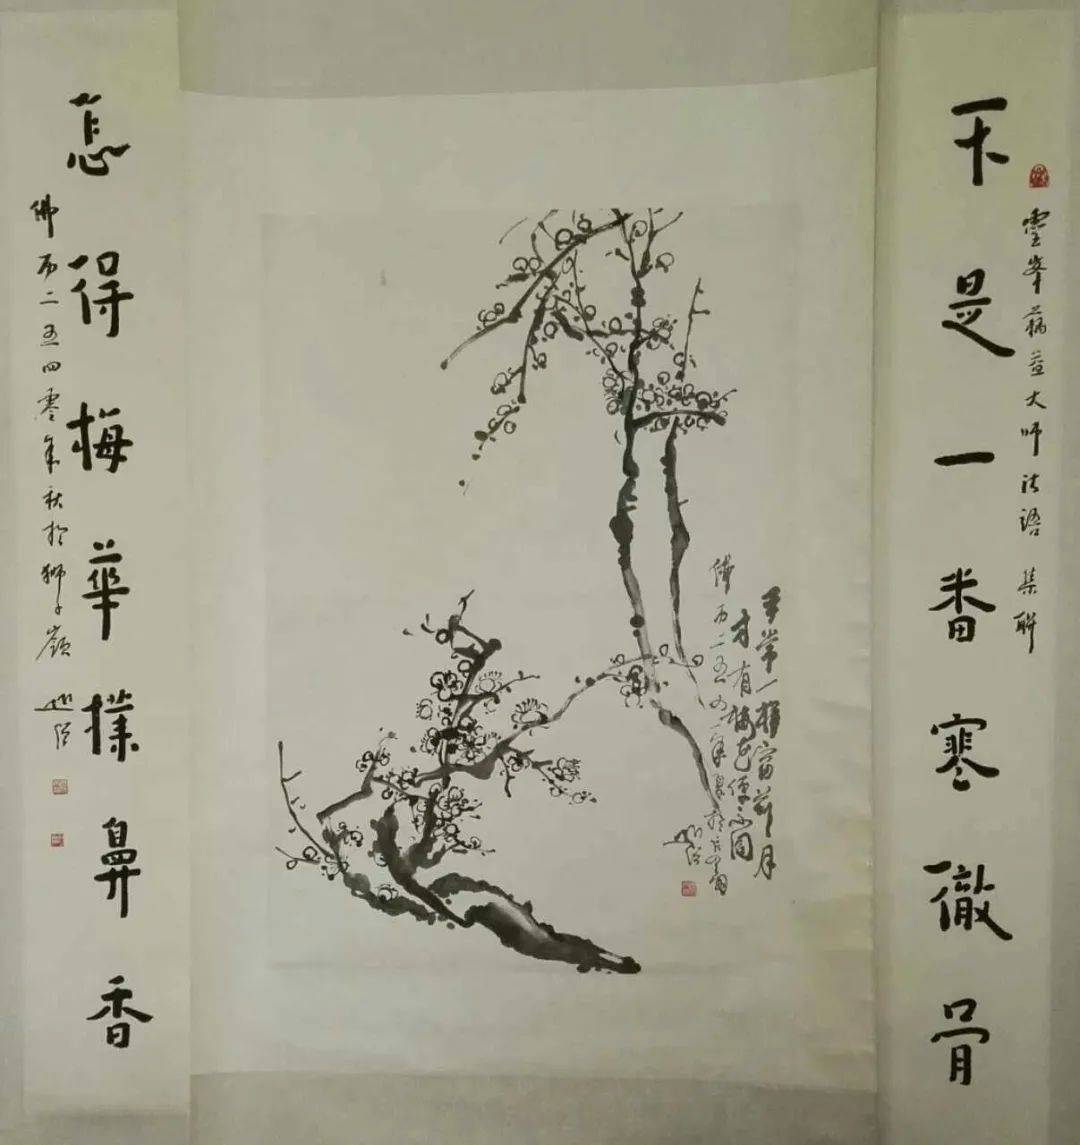 不是一番寒徹骨
靈峯蕅益大師法語 集聯
平常一樣窗前月
才有梅花便不同
佛历二五
怎得梅華撲鼻香
佛历二五四零年秋於獅子嶺